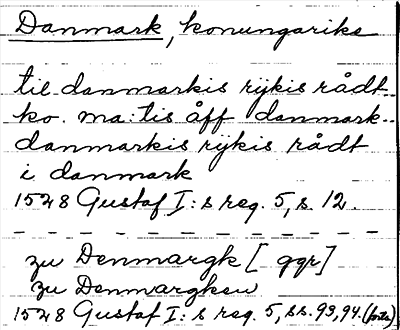 Danmark, konungarike
til danmarkis rijkis rådt..
ko. ma:tis åff danmark..
danmarkis rijkis rådt
i danmark
1528 Gustaf I:s reg. 5, s. 12.
zu Denmargk [ ggr]
zu Denmargken
1528 Gustaf I:s reg. 5, ss. 93, 94. (forts)